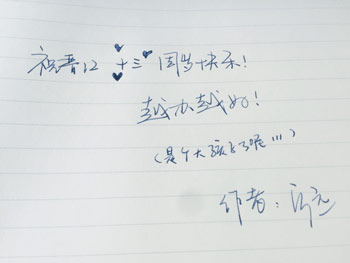 祝晋江十三周岁快乐！
越办越好！
（是个大孩子了喔！！！）
作者：